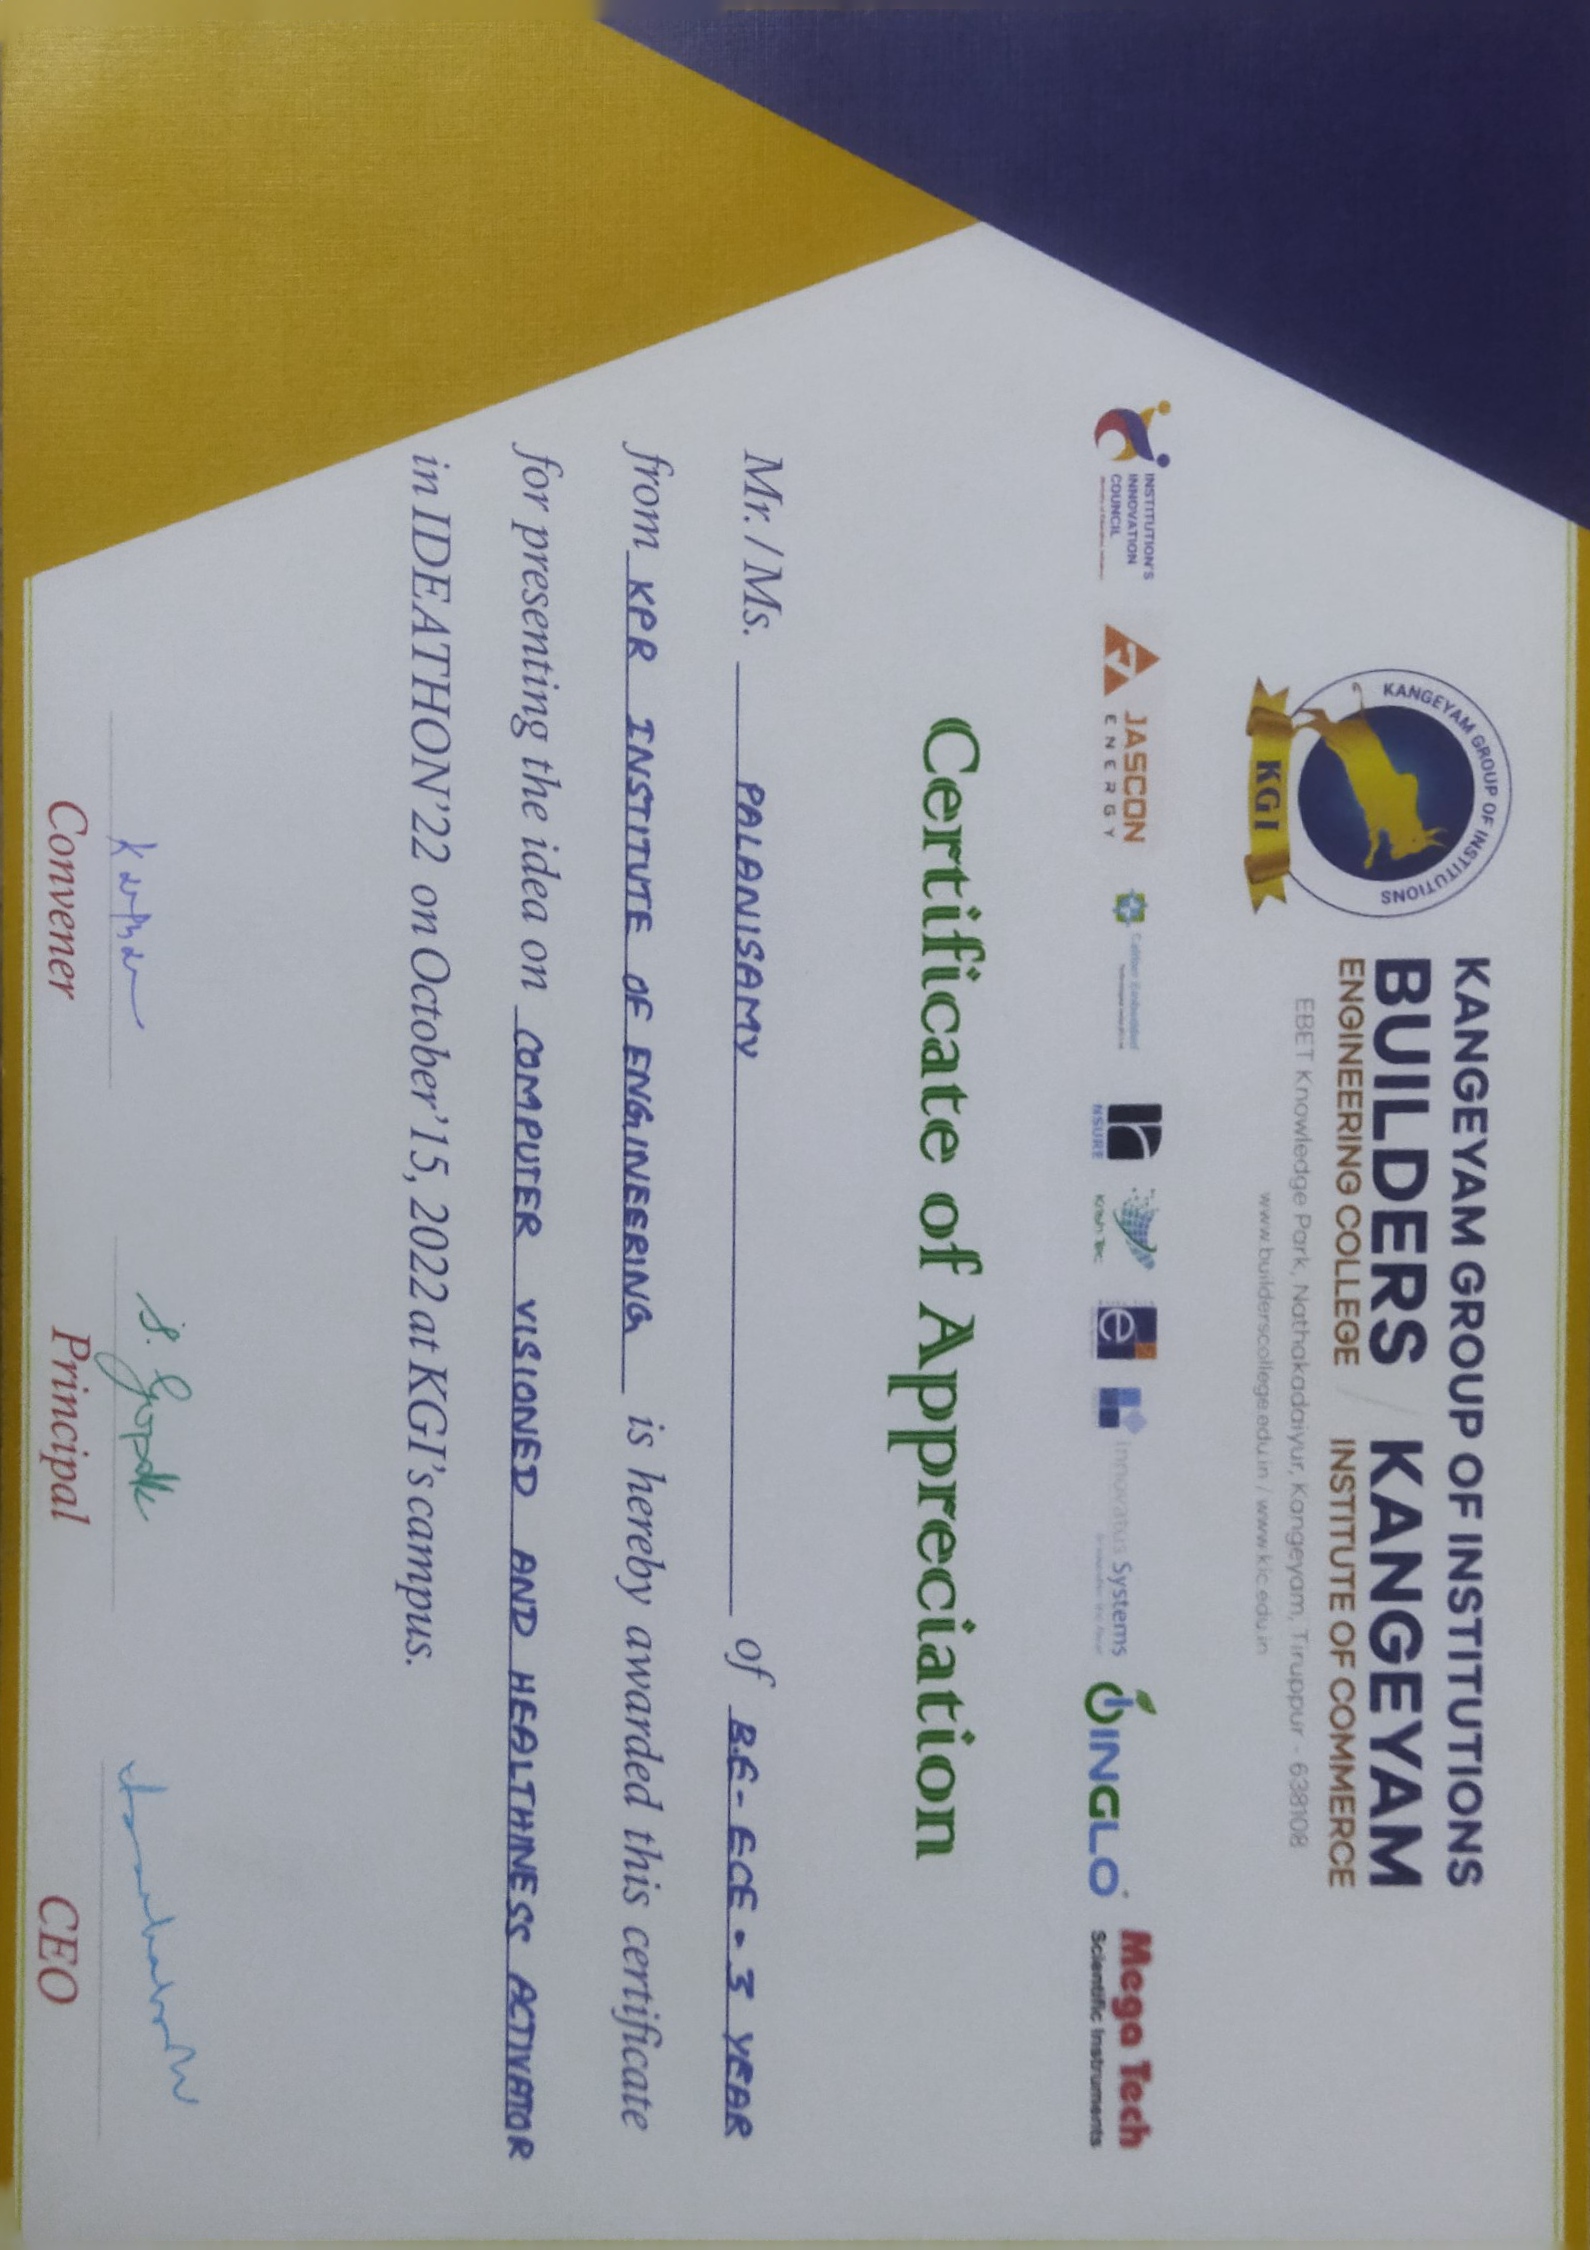 KANGEYAM GROUP OF INSTITUTIONS
KGI
KANGEYAM GROUP OF INSTITUTIONS
BUILDERS / KANGEYAM
ENGINEERING COLLEGE INSTITUTE OF COMMERCE
EBET Knowledge Park, Nathakadaiyur, Kangeyam, Tiruppur - 638108
www.builderscollege.edu.in / www.kic.edu.in
INSTITUTION'S
INNOVATION
COUNCIL
JASCON
ENERGY
Caliber Embedded
NSURE
Krish Tec
e
Innovatus Systems
INGLO
Mega Tech
Scientific Instruments
Certificate of Appreciation
Mr. / Ms. PALANISAMY of B.E - ECE - 3 YEAR
from KPR INSTITUTE OF ENGINEERING is hereby awarded this certificate
for presenting the idea on COMPUTER VISIONED AND HEALTHINESS ACTIVATOR
in IDEATHON'22 on October'15, 2022 at KGI's campus.
Convener Principal CEO